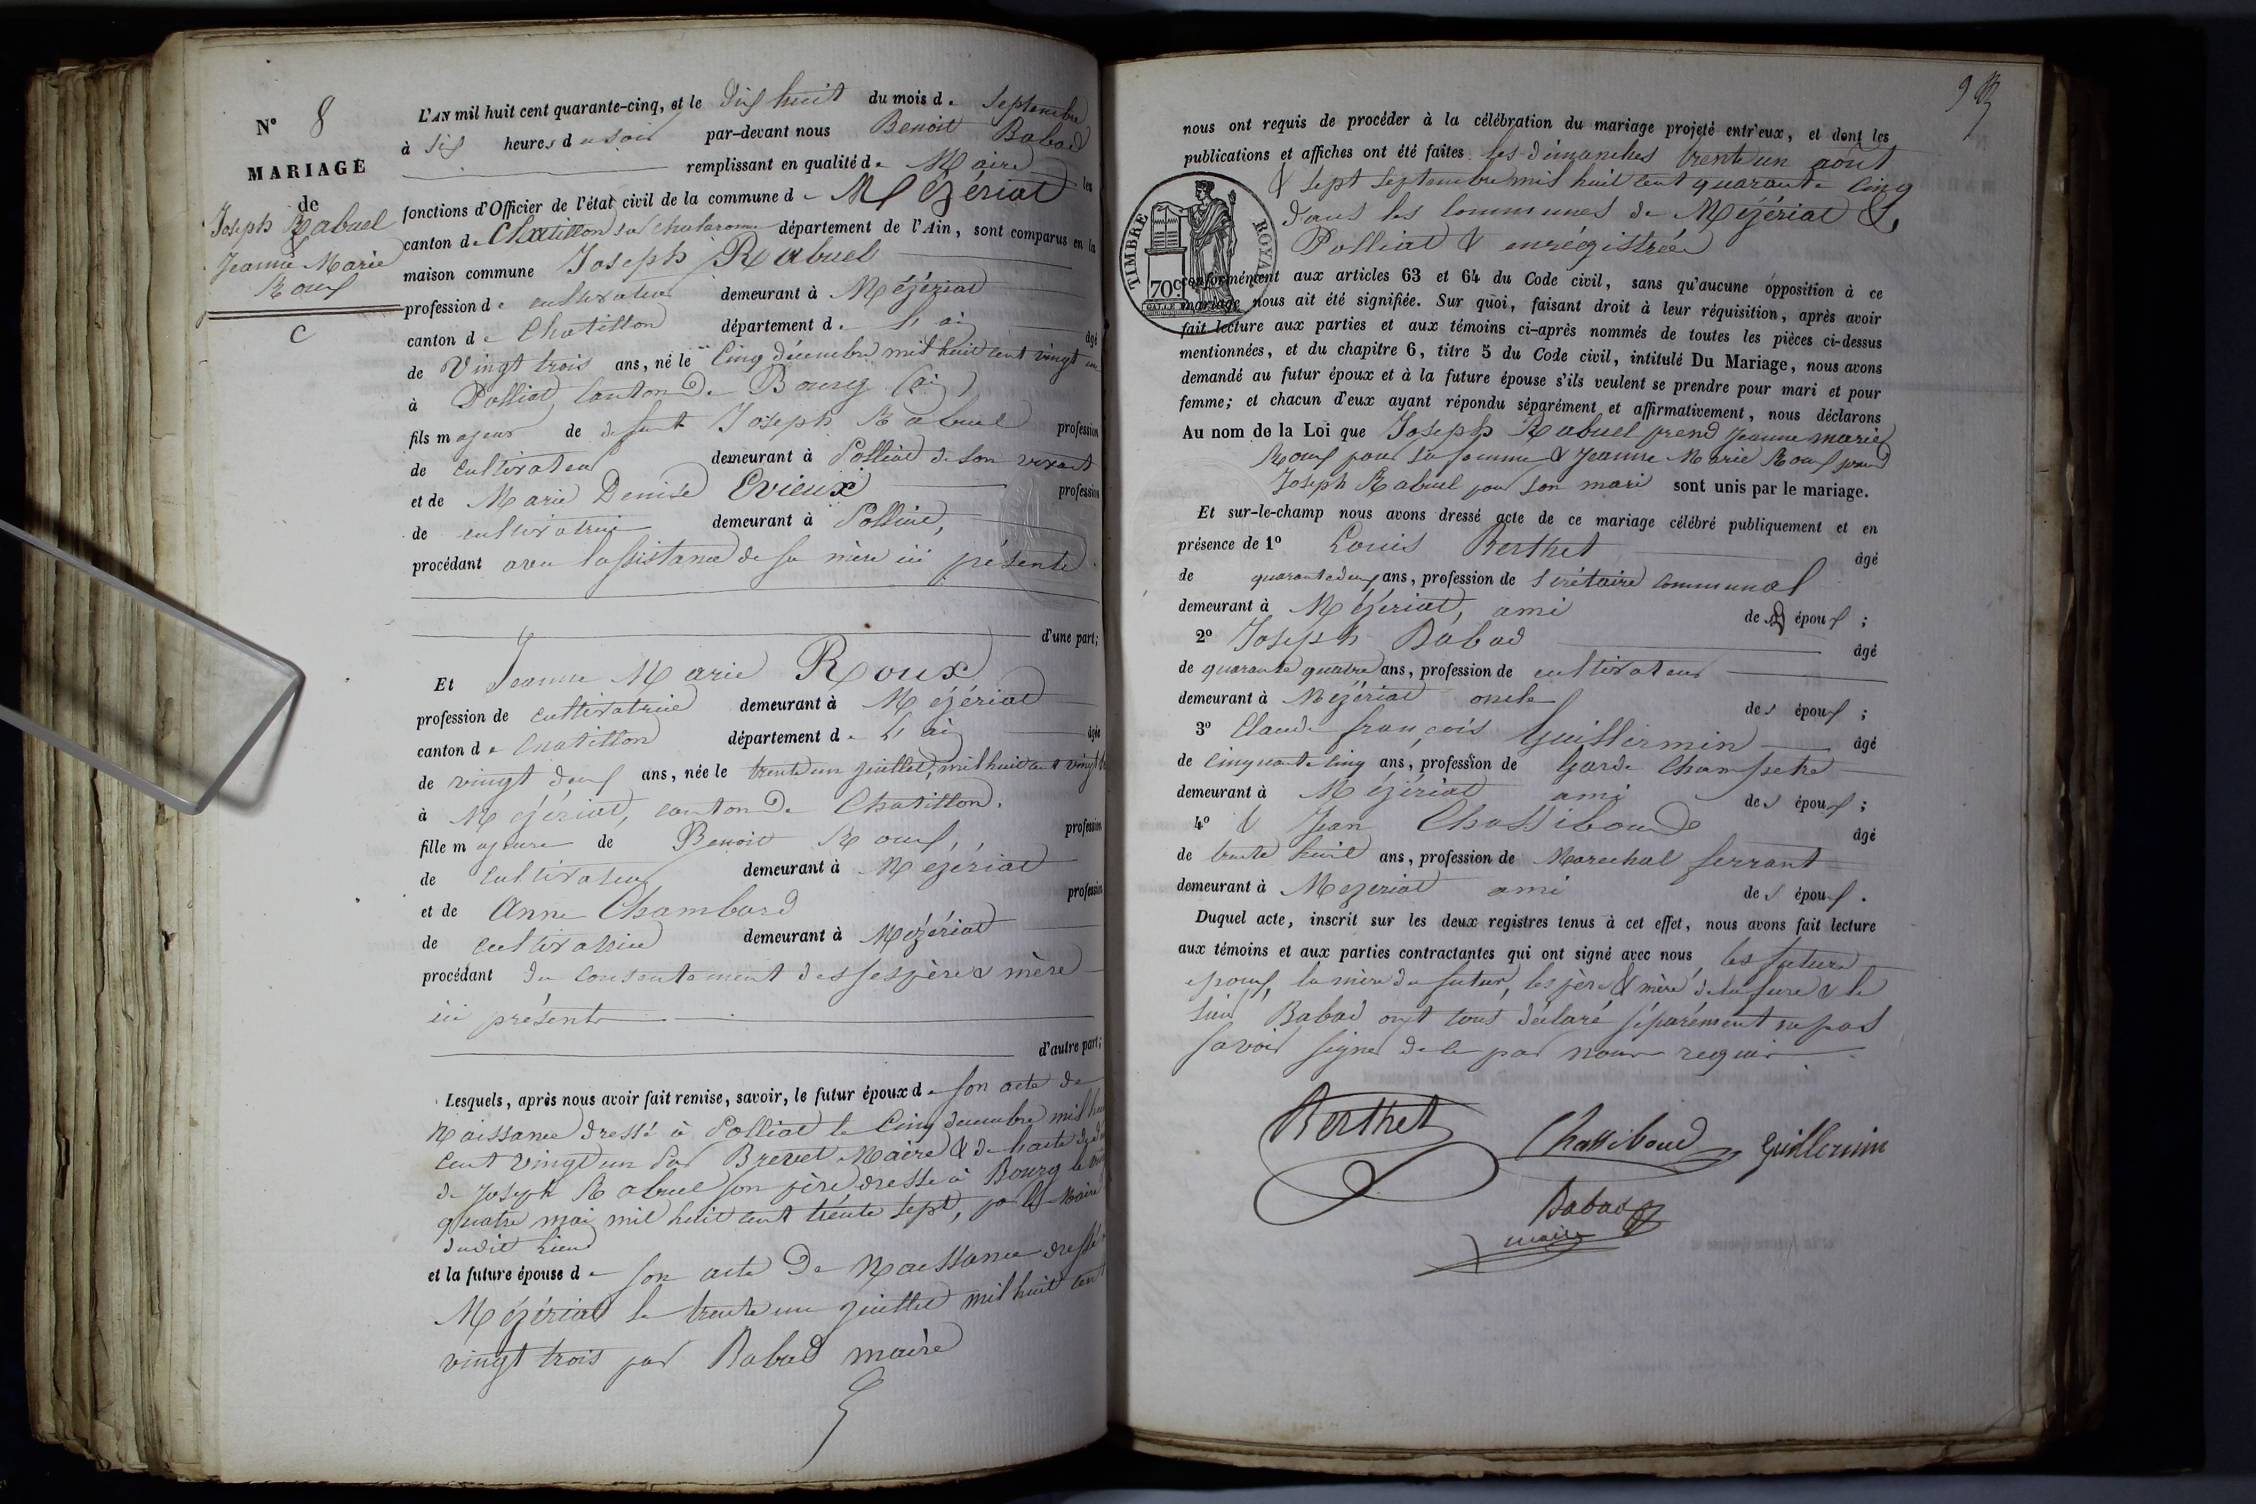 N° 8
MARIAGE
de
Joseph Rabuel
&
Jeanne Marie
Roux
C
L'AN mil huit cent quarante-cinq, et le dix huit du mois de septembre
à six heures du soir par-devant nous Benoit Babad
remplissant en qualité de Maire les
fonctions d'Officier de l'état civil de la commune de Mézériat
canton de Chatillon sur Chalaronne département de l'Ain, sont comparus en la
maison commune Joseph Rabuel
profession de cultivateur demeurant à Mézériat
canton de Chatillon département de l'ain âgé
de Vingt trois ans, né le cinq décembre mil huit cent vingt un
à Polliat canton de Bourg (ain)
fils majeur de défunt Joseph Rabuel profession
de cultivateur demeurant à Polliat de son vivant
et de Marie Denise Evieux profession
de cultivatrice demeurant à Polliat,
procédant avec l'assistance de sa mère ici présente
d'une part;
Et Jeanne Marie Roux
profession de cultivatrice demeurant à Mézériat
canton de Chatillon département de l'ain âgée
de vingt deux ans, née le trente un juillet, mil huit cent vingt
à Mézériat, canton de Chatillon.
fille majeure de Benoit Roux, profession
de cultivateur demeurant à Mézériat
et de Anne Chambard profession
de cultivatrice demeurant à Mézériat
procédant du consentement de ses père & mère
ici présents
d'autre part;
Lesquels, après nous avoir fait remise, savoir, le futur époux de son acte de
Naissance dressé à Polliat le cinq décembre mil huit
cent vingt un par Brevet Maire & de l'acte de
de Joseph Rabuel son père dressé à Bourg le
quatre mai mil huit cent trente sept, par le Maire
dudit lieu
et la future épouse de son acte de Naissance dressé
Mézériat le trente un juillet mil huit cent
vingt trois par Babad maire
93
nous ont requis de procéder à la célébration du mariage projeté entr'eux, et dont les
publications et affiches ont été faites les dimanches trente un août
& sept septembre mil huit cent quarante cinq
dans les communes de Mézériat &
Polliat & enrégistrées
TIMBRE ROYAL
70c
conformément aux articles 63 et 64 du Code civil, sans qu'aucune opposition à ce
mariage nous ait été signifiée. Sur quoi, faisant droit à leur réquisition, après avoir
fait lecture aux parties et aux témoins ci-après nommés de toutes les pièces ci-dessus
mentionnées, et du chapitre 6, titre 5 du Code civil, intitulé Du Mariage, nous avons
demandé au futur époux et à la future épouse s'ils veulent se prendre pour mari et pour
femme; et chacun d'eux ayant répondu séparément et affirmativement, nous déclarons
Au nom de la Loi que Joseph Rabuel prend Jeanne marie
Roux pour sa femme & Jeanne Marie Roux prend
Joseph Rabuel pour son mari sont unis par le mariage.
Et sur-le-champ nous avons dressé acte de ce mariage célébré publiquement et en
présence de 1° Louis Berthet âgé
de quarante deux ans, profession de secrétaire communal
demeurant à Mézériat, ami des époux ;
2° Joseph Babad âgé
de quarante quatre ans, profession de cultivateur
demeurant à Mézériat oncle des époux ;
3° Claude françois Guillermin âgé
de cinquante cinq ans, profession de Garde Champetre
demeurant à Mézériat ami des époux ;
4° & Jean Chassiboud âgé
de trente huit ans, profession de Marechal ferrant
demeurant à Mezeriat ami des époux .
Duquel acte, inscrit sur les deux registres tenus à cet effet, nous avons fait lecture
aux témoins et aux parties contractantes qui ont signé avec nous les futurs
époux, la mère du futur, les père & mère de la future & le
sieur Babad ont tous déclaré séparément ne pas
savoir signer de ce par nous requis
Berthet
Chassiboud
Guillermin
Babad
maire